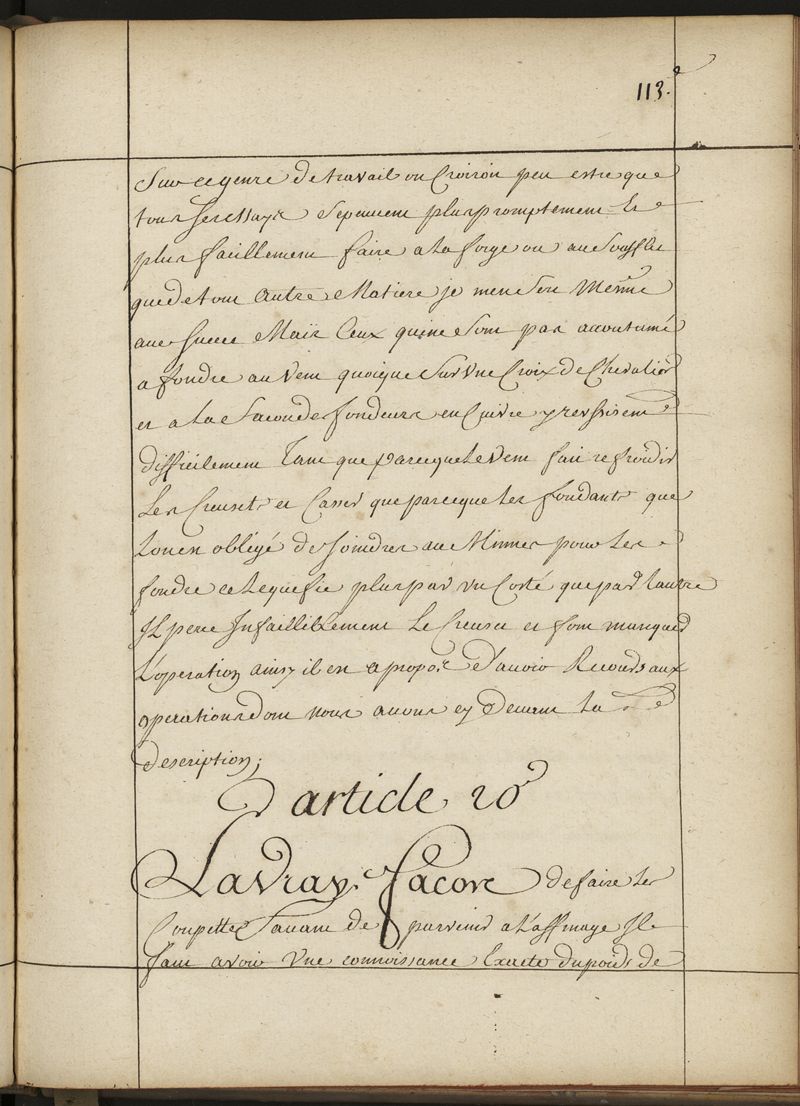 113.
Sur ce genre de travail on Croiroit peu estre que
tous ses Essays se peuvent plus promptement Et
plus facillement faire a la forge ou au Soufflet
que de tout autre Matiere je men Suis Mesme
avec Succes Mais Ceux qui ne Sont pas accoutumé
a fondre au Vent quoique Sur Une Croix de Chevalier
et a la facon des fondeurs en Cuivre y reussissent
difficilement Tant que parceque le Vent fait refroidir
Les Creusets et Casser que parceque les fondants que
Lon est obligé de Joindres au Minnes pour les
fondre et Lequefie plus par un Costé que par Lautre
Il perce Infailliblement Le Creuset et font manquer
L'operation ainsy il est a propos d'avoir Recours aux
operations dont nous avons cy devant La
description;
article 20
La Vray Facon de faire les
Coupelles Savant de parvenir a L'affinage Il
faut avoir Une connoissance Exacte du poids de